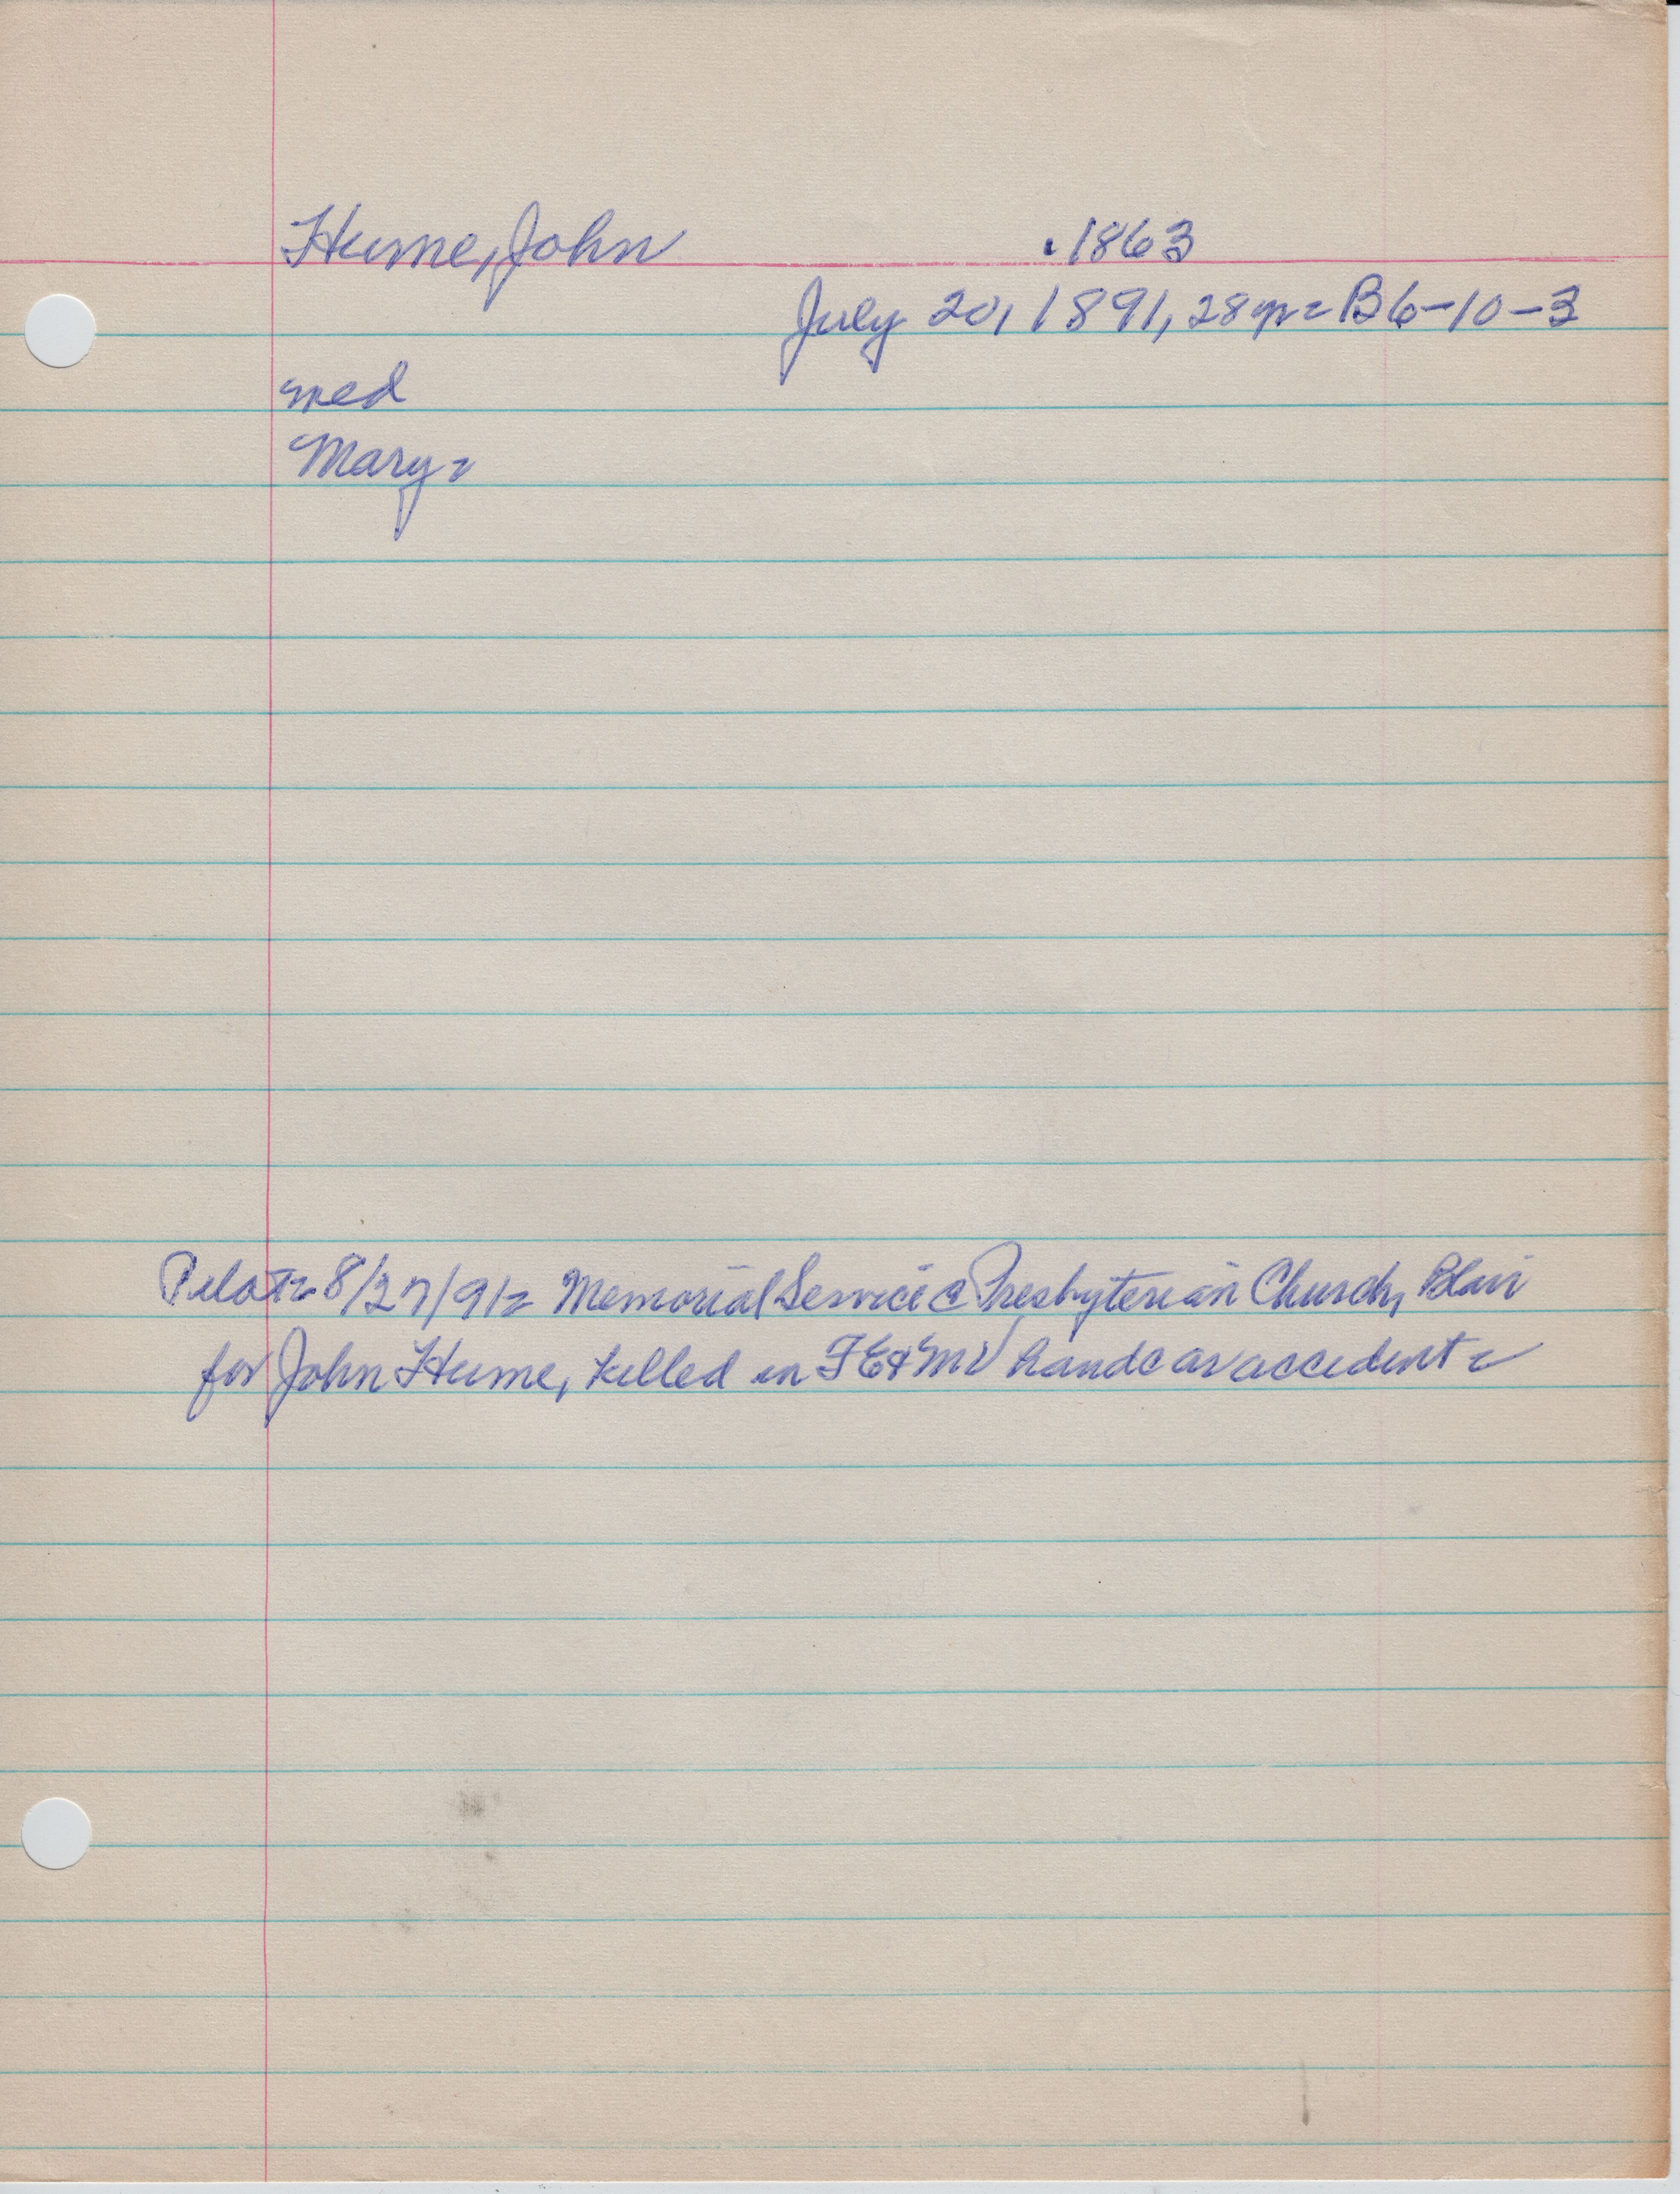 Hume, John .1863
July 20, 1891, 28 yr= B6-10-3
med
Mary=
Pilot= 8/27/91= Memorial Service @ Presbyterian Church, Blair
for John Hume, killed in FE&MV handcar accident=